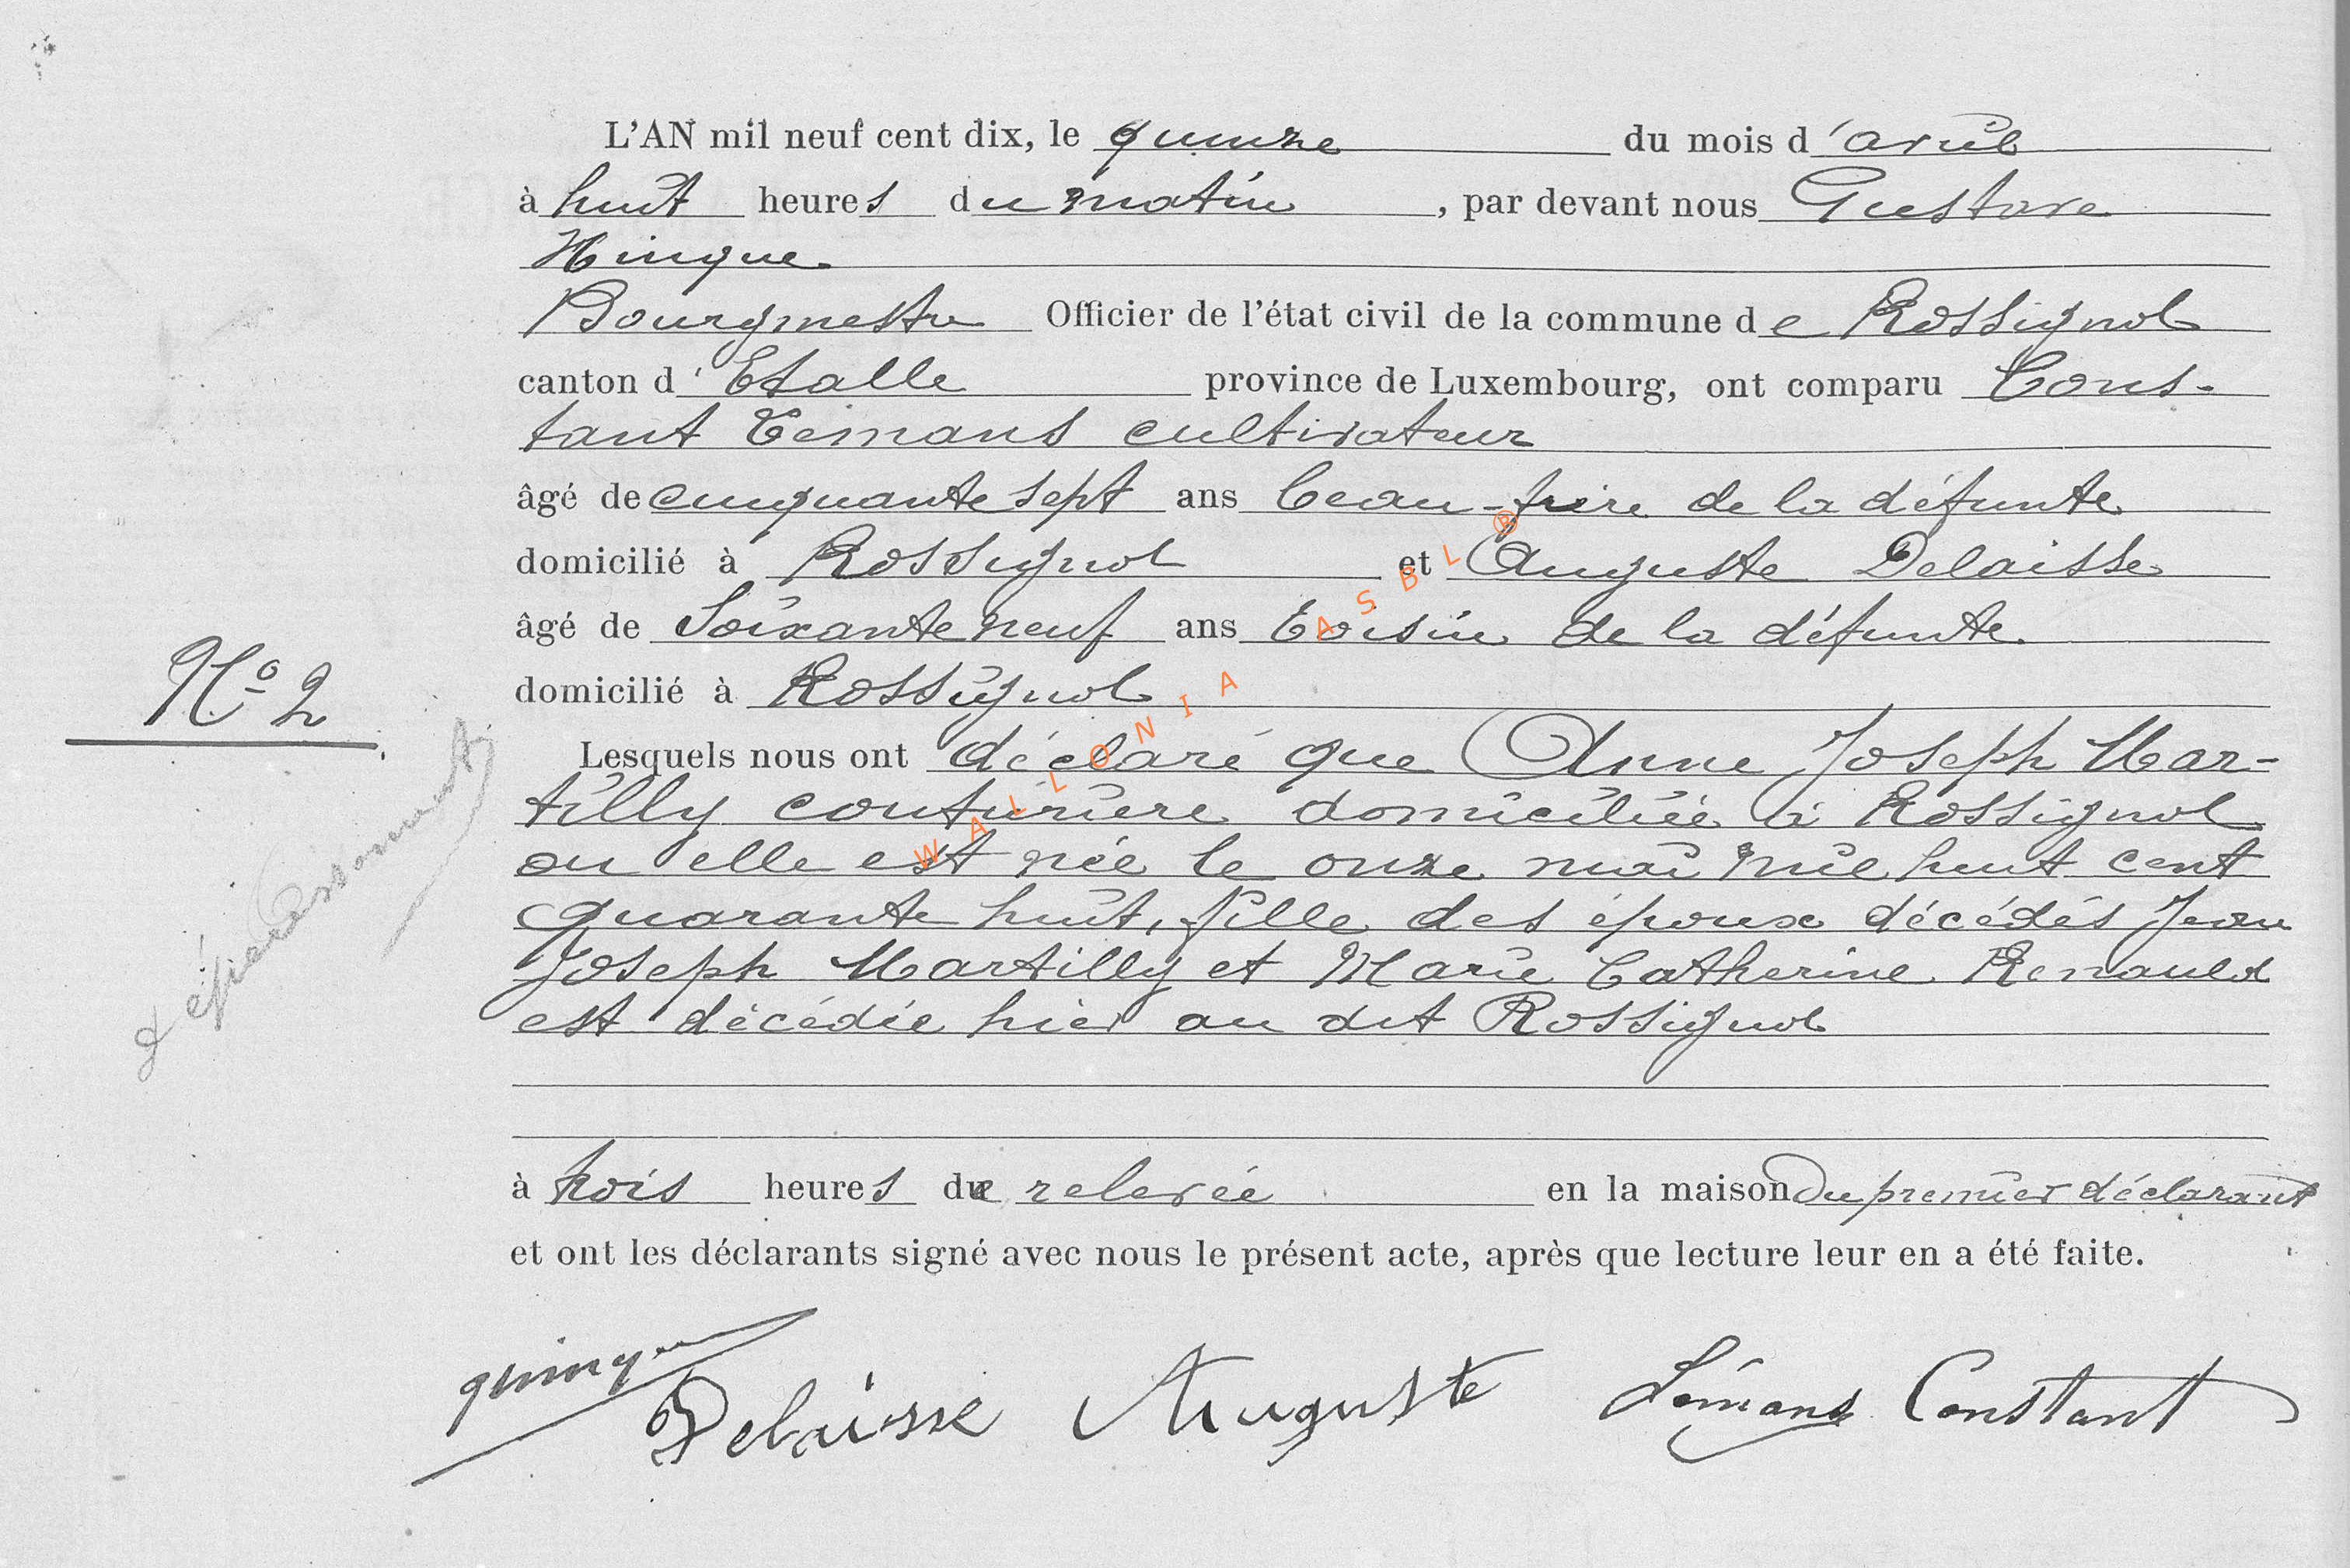 L'AN mil neuf cent dix, le quinze du mois d'avril
à huit heures du matin, par devant nous Gustave
Hinque
Bourgmestre Officier de l'état civil de la commune de Rossignol
canton d'Etalle province de Luxembourg, ont comparu Cons-
tant cultivateur
âgé de cinquante sept ans beau-frère de la défunte
domicilié à Rossignol et Auguste Delaisse
âgé de Soixante neuf ans Voisin de la défunte
domicilié à Rossignol
N° 2
Lesquels nous ont déclaré que Anne Joseph Mar-
tilly couturière domiciliée à Rossignol
ou elle est née le onze mai mil huit cent
quarante huit, fille des époux décédés Jean
Joseph Martilly et Marie Catherine Renauld
est décédée hier au dit Rossignol
à trois heures de relevée en la maison du premier déclarant
et ont les déclarants signé avec nous le présent acte, après que lecture leur en a été faite.
Delaisse Auguste Constant
WALLONIA ASBL ®